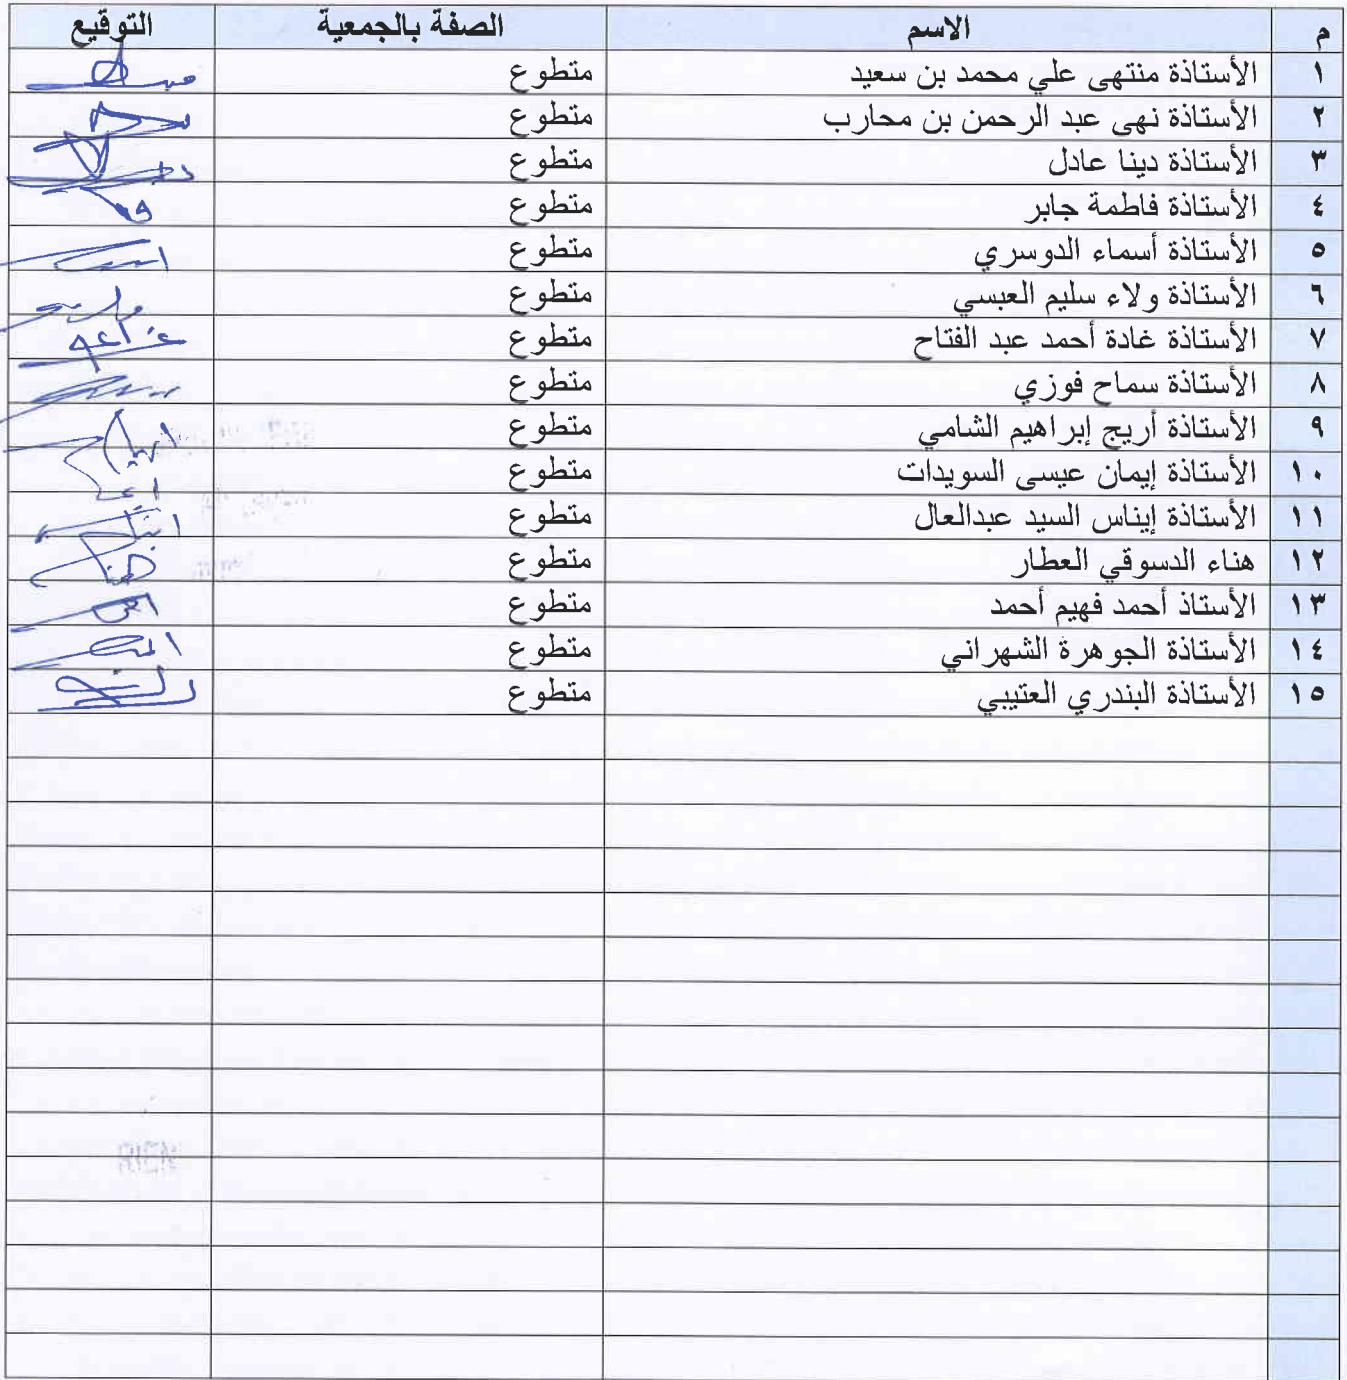 م الاسم الصفة بالجمعية التوقيع
١ الأستاذة منتهى علي محمد بن سعيد متطوع
٢ الأستاذة نهى عبد الرحمن بن محارب متطوع
٣ الأستاذة دينا عادل متطوع
٤ الأستاذة فاطمة جابر متطوع
٥ الأستاذة أسماء الدوسري متطوع
٦ الأستاذة ولاء سليم العبسي متطوع
٧ الأستاذة غادة أحمد عبد الفتاح متطوع
٨ الأستاذة سماح فوزي متطوع
٩ الأستاذة أريج إبراهيم الشامي متطوع
١٠ الأستاذة إيمان عيسى السويدات متطوع
١١ الأستاذة إيناس السيد عبدالعال متطوع
١٢ هناء الدسوقي العطار متطوع
١٣ الأستاذ أحمد فهيم أحمد متطوع
١٤ الأستاذة الجوهرة الشهراني متطوع
١٥ الأستاذة البندري العتيبي متطوع